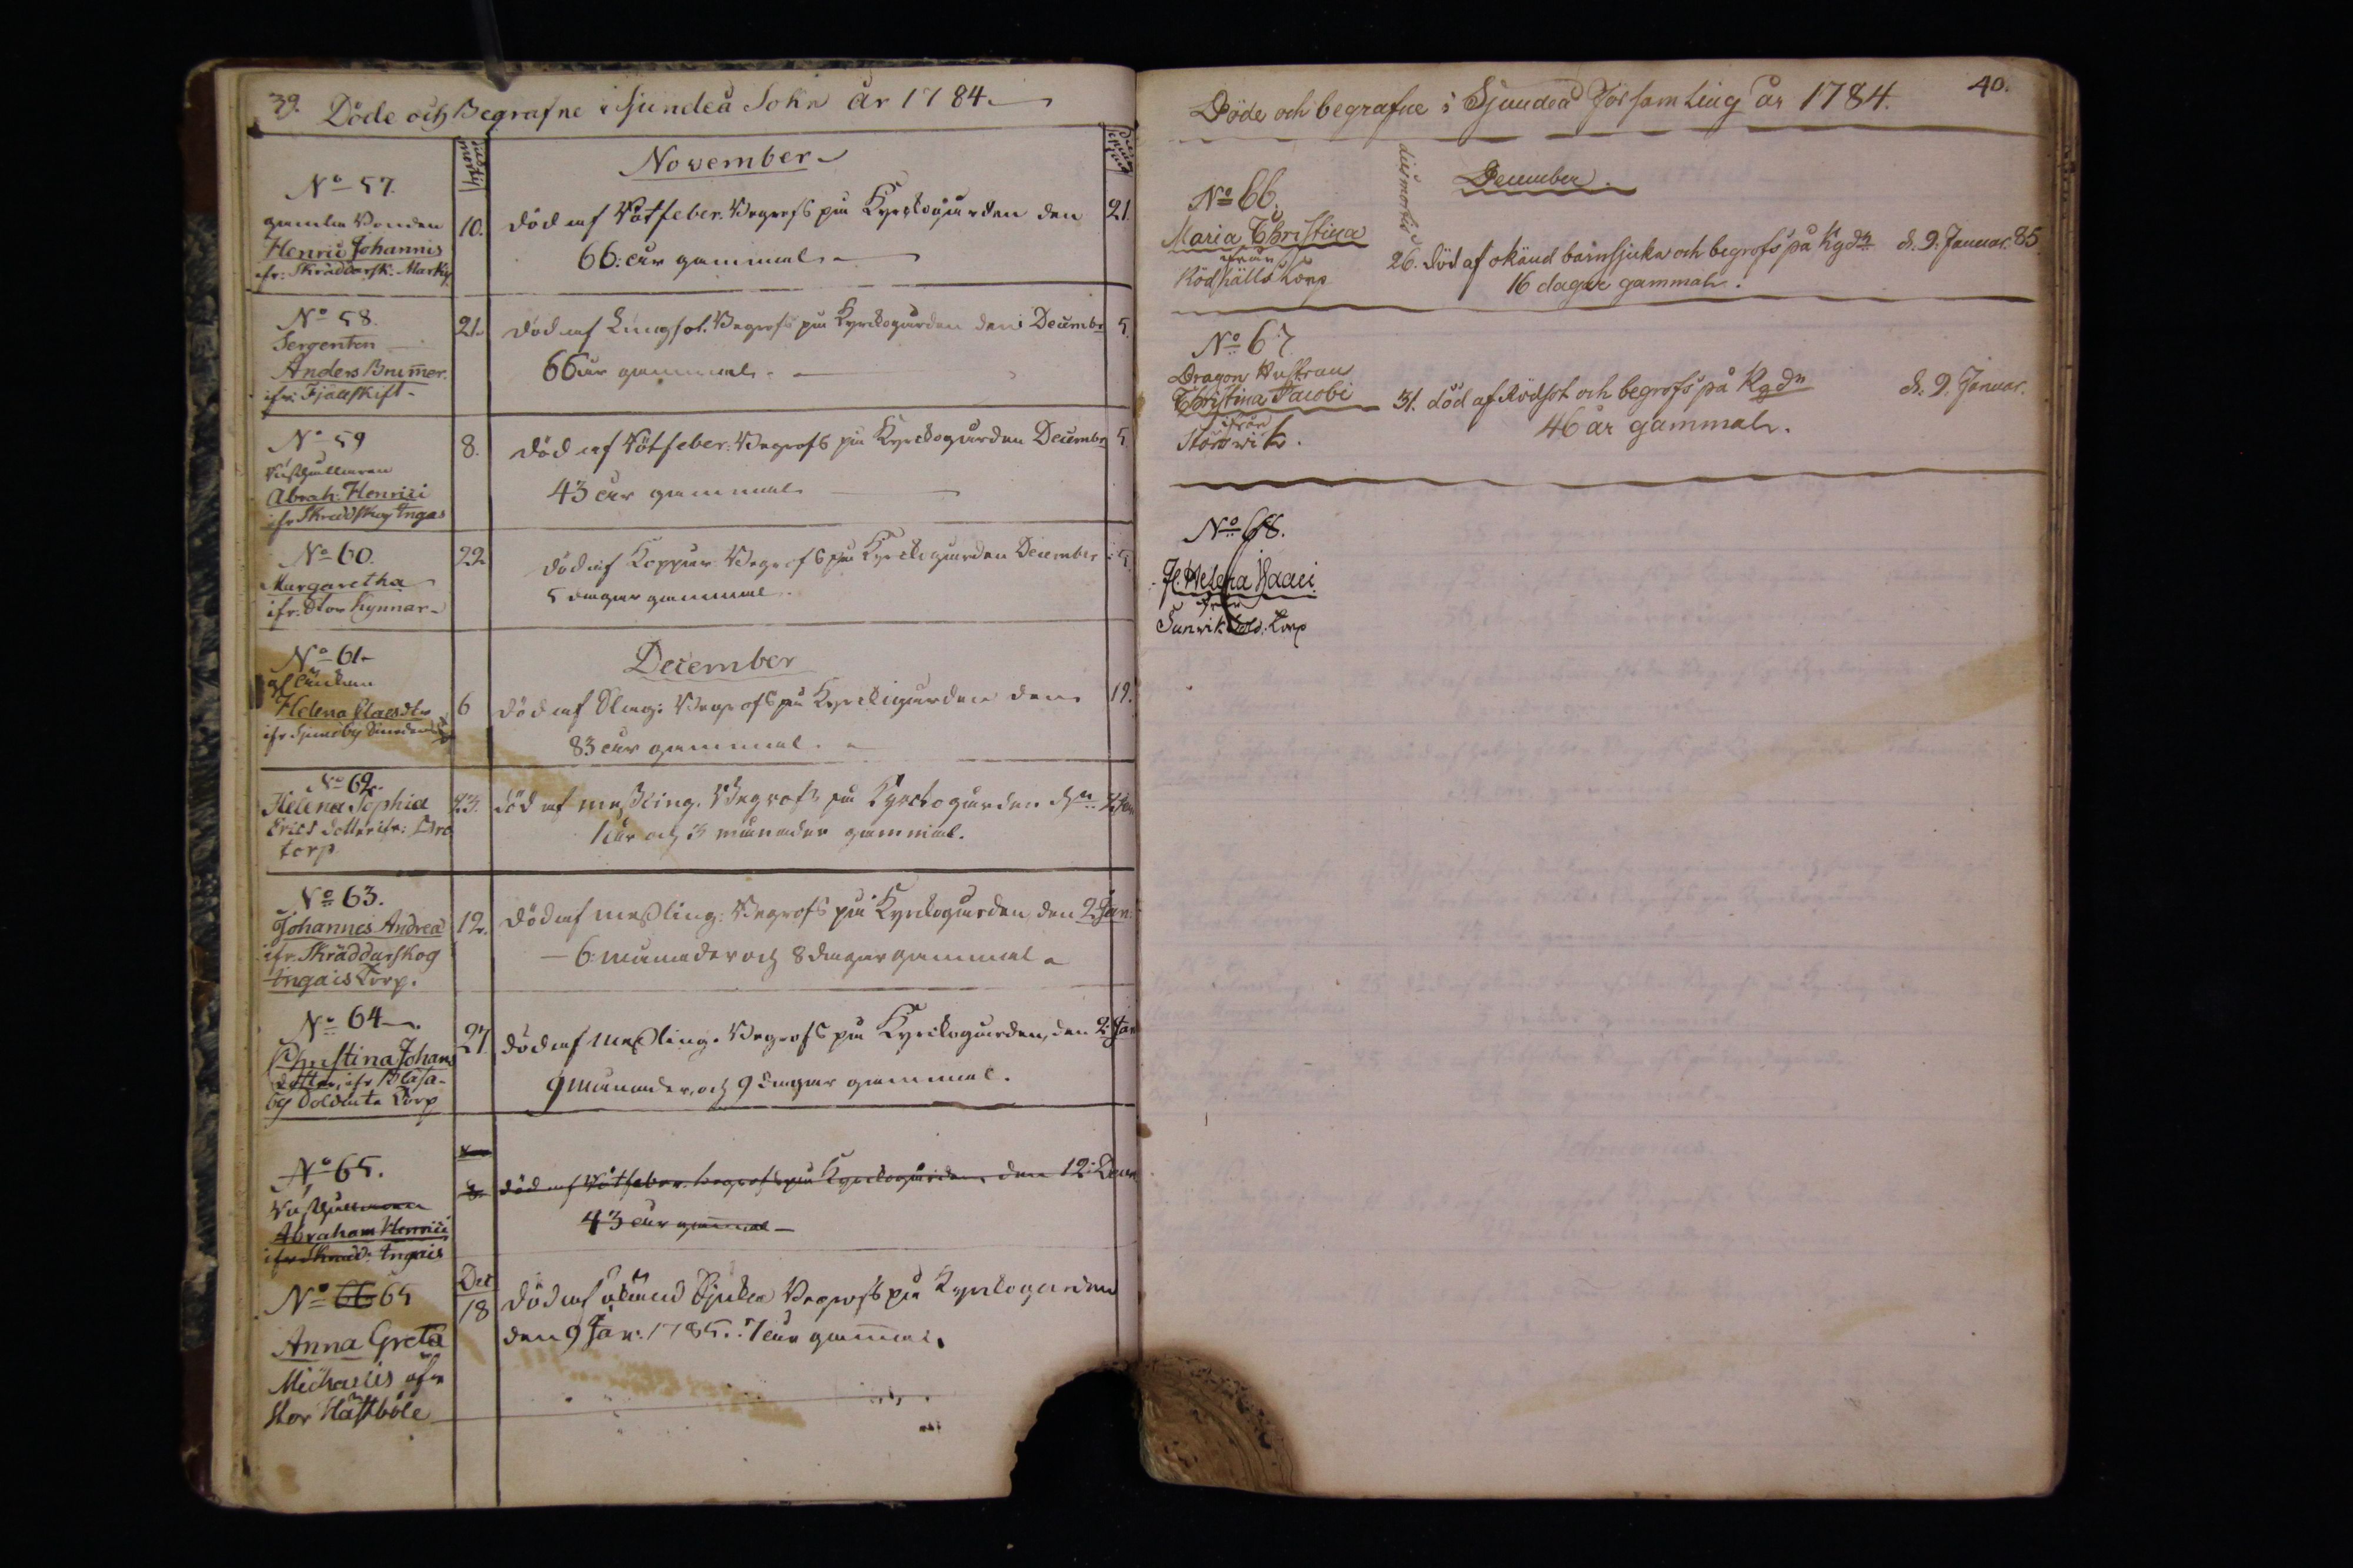 39. Döde och Begrafne i Sjundeå Sokn år 1784.
dies mortis
November
No 57.
gamla Bonden
Henric Johannis
ifr: Skräddarsk: Marks
10.
död af Rötfeber. Begrofs på Kyrckogården den
21.
66: åur gammal.
No 58.
Sergenten
Anders Brummer.
ifr: Fjällskift
21.
död af Lungsot. Begrofs på Kyrckogården den Decembr
5.
66 år gammal.
No 59
Abrah: Henrici
ifr Skreddskog Ingas
8.
död af Rötfeber. Begrofs på Kyrckogården Decembr
5.
43 år gammal.
No 60.
Margaretha
ifr: Stor Kynnar
22
död af Koppor Begrofs på Kyrckogården December
5.
5 dagar gammal.
No 61
Enckan
Helena Claesdtr
ifr Sjundby
December
6
död af Slag: Begrofs på Kyrckogården den
19.
83 år gammal.
No 62.
Helena Sophia
Erics dotter ifr:
torp
23.
död af meßling. Begrofs på Kyrckogården dn Jan
1 år och 3 månader gammal.
No 63.
Johannes Andreæ
ifr. Skräddarskog
Ingais Torp.
12.
död af meßling: Begrofs på Kyrckogården, den 2 Jan.
6: månader och 8 dagar gammal
No 64.
Christina Johans
dotter, ifr Blåsa-
by Soldate Torp
27.
död af meßling. Begrofs på Kyrckogården, den 2. Jan
9 månader, och 9 dagar gammal.
No 65.
Abraham Henrici
ifr Skräd: Ingais
8.
död af Rötfeber. begrofs på Kyrckogården, den 12:
43 år gammal
No 66 65
Anna Greta
Michaelis ifr
Stor Hästböle
Dec
18
död af okänd Sjuka Begrofs på Kyrckogården
den 9 Jan: 1785. 7 år gammal.
40.
Döde och begrafne i Sjundeå Församling år 1784.
dies mortis
December.
No 66.
Maria Christina
ifrån
Rödhälls Torp
26. död af okänd barnsjuka och begrofs på Kgdn d. 9. Januar. 85
16 dagar gammal.
No 67.
Dragon Hustrun
Christina Jacobi
ifrån
Störswik.
31. död af Rödsot och begrofs på Kgdn d. 9. Januar.
46 år gammal.
No 68.
H. Helena Isaaci
ifrån
Sunwik. Sold: Torp